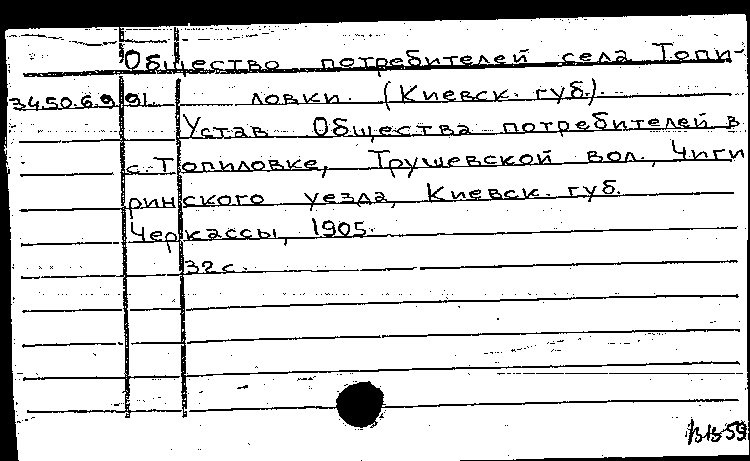 Общество потребителей села Топи-
34.50.6.9 91 ловки. (Киевск. губ.).
Устав Общества потребителей в
с. Топиловке, Трушевской вол., Чиги
ринского уезда, Киевск. губ.
Черкассы, 1905.
32 с.